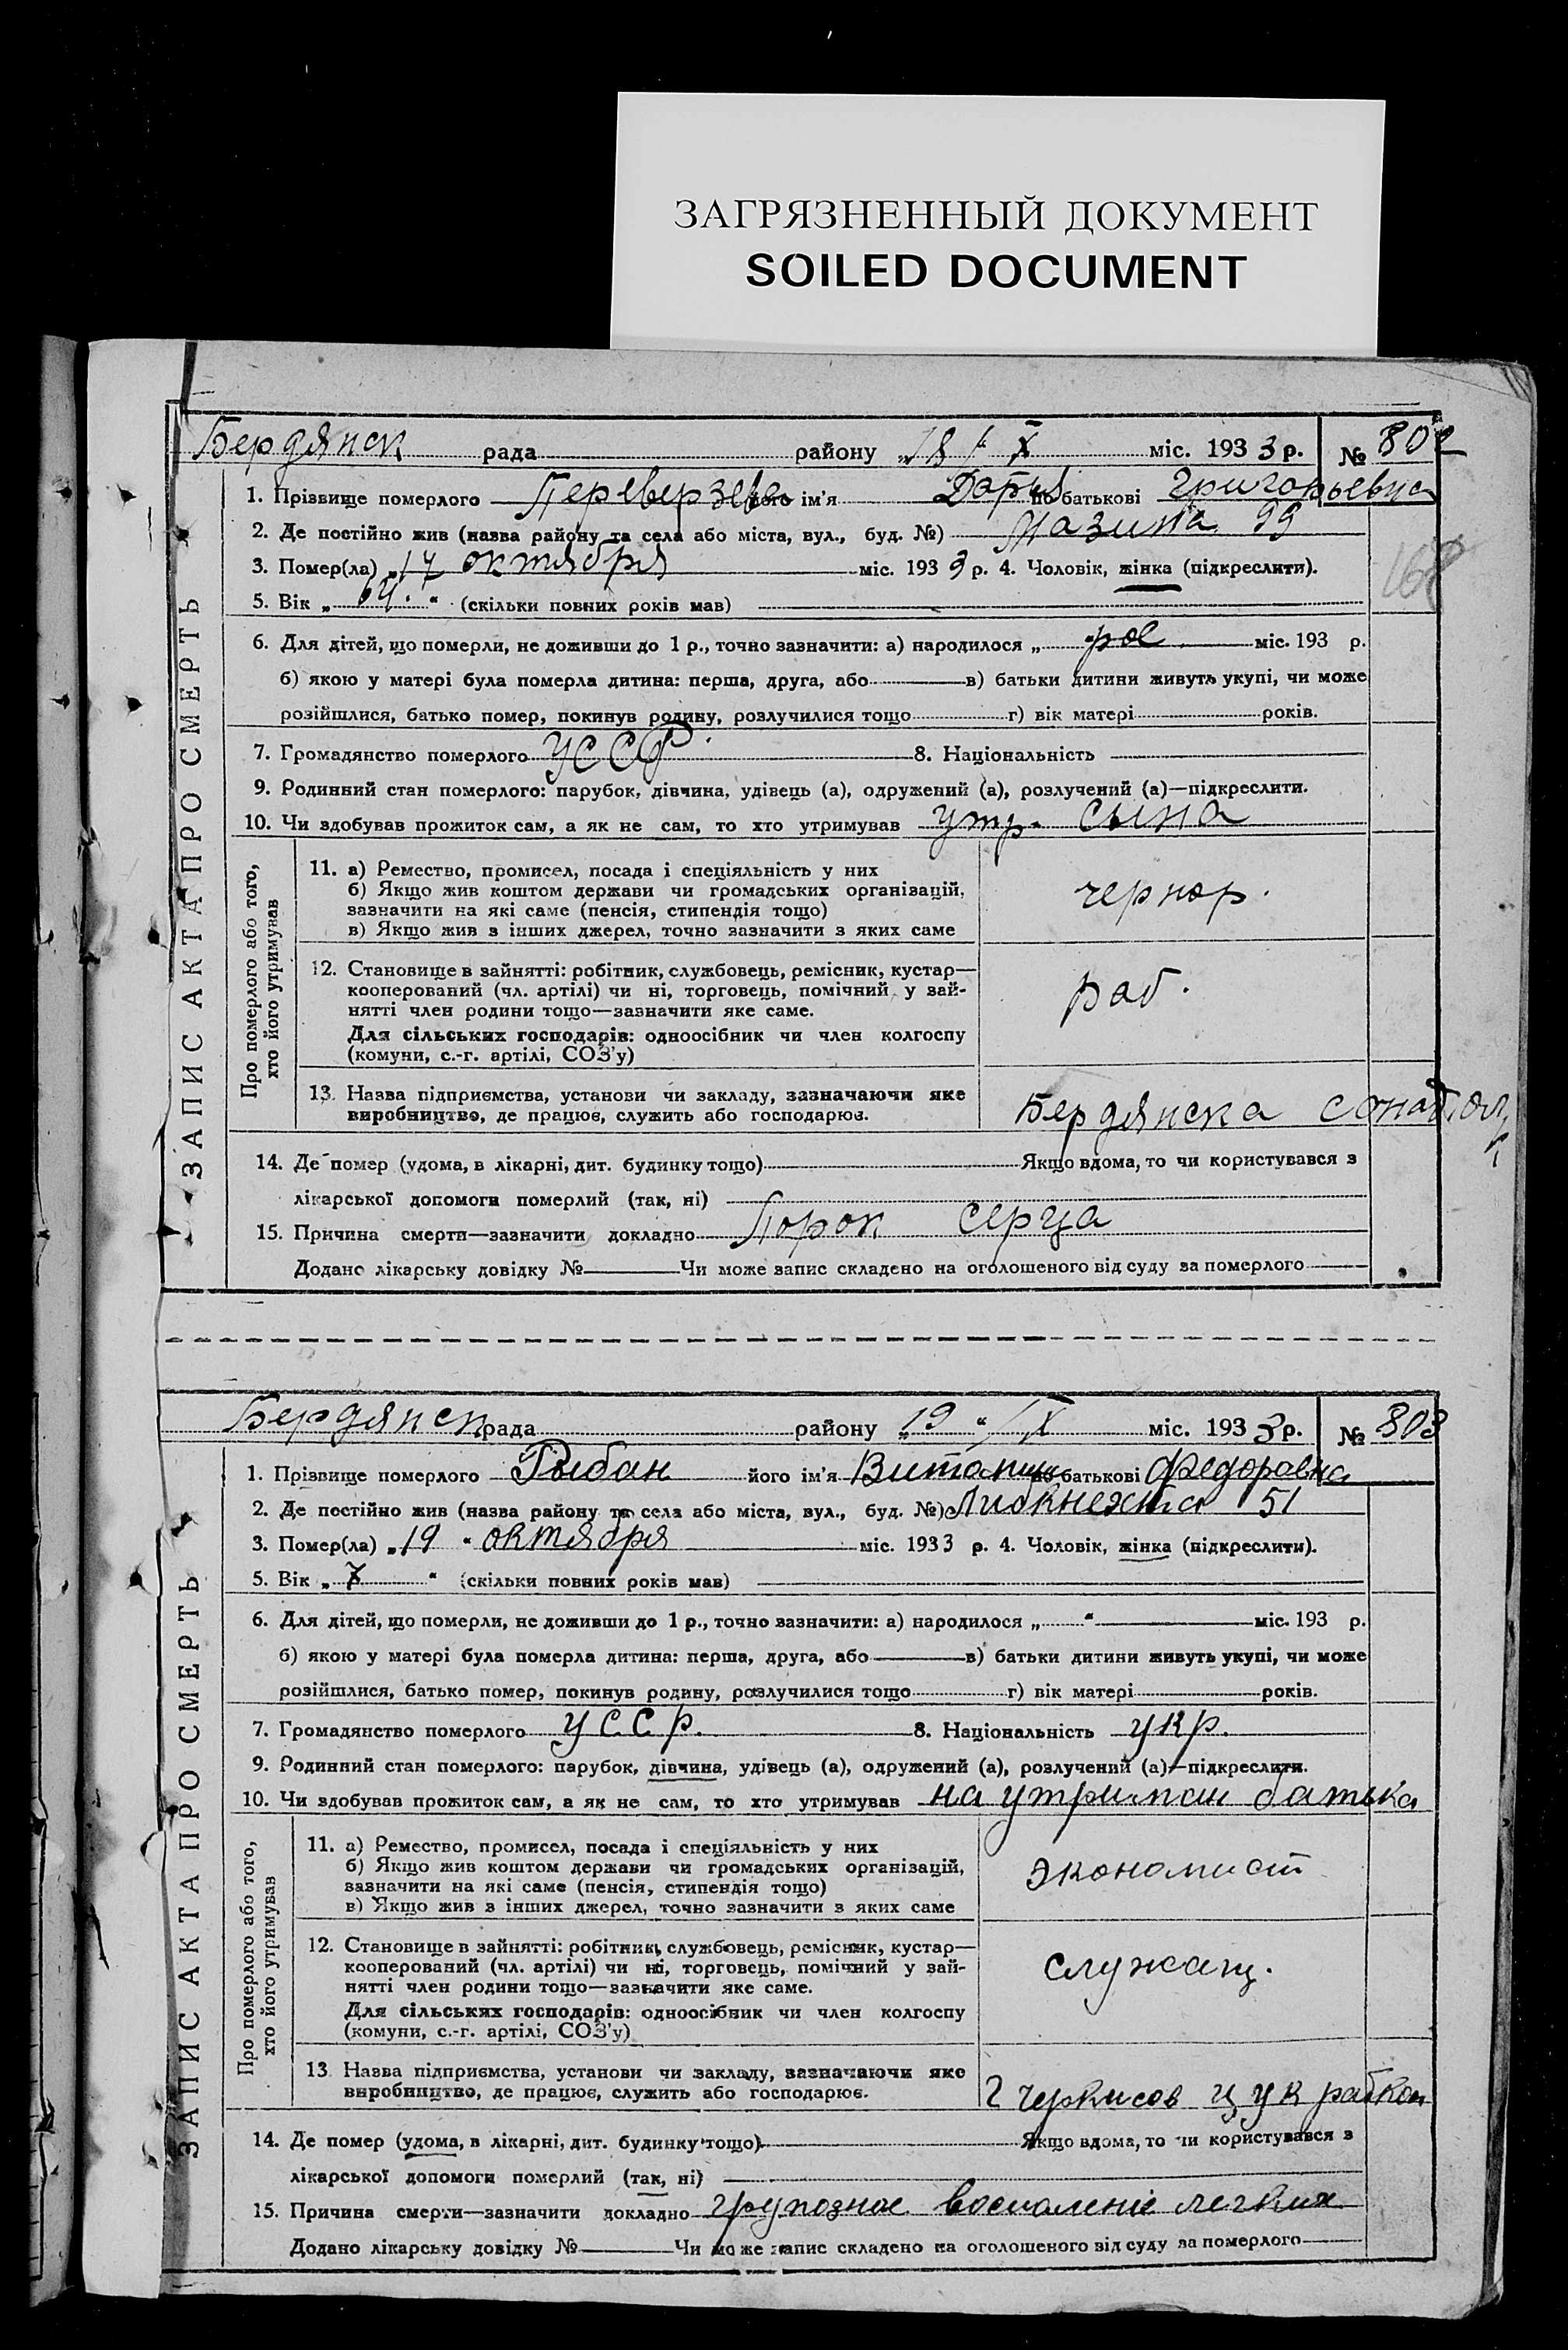 ЗАГРЯЗНЕННЫЙ ДОКУМЕНТ
SOILED DOCUMENT
ЗАПИС АКТА ПРО СМЕРТЬ
Бердянск рада району „18" X міс. 1933 р. № 802
1. Прізвище померлого Переверзева його ім'я Дарья по батькові Григорьевна
2. Де постійно жив (назва району та села або міста, вул., буд. №) Мазина 99
3. Помер(ла) „17 октября міс. 1933 р. 4. Чоловік, жінка (підкреслити).
168
5. Вік „64." (скільки повних років мав)
6. Для дітей, що померли, не доживши до 1 р., точно зазначити: а) народилося „ " міс. 193 р.
б) якою у матері була померла дитина: перша, друга, або в) батьки дитини живуть укупі, чи може
розійшлися, батько помер, покинув родину, розлучилися тощо г) вік матері років.
7. Громадянство померлого УССР. 8. Національність
9. Родинний стан померлого: парубок, дівчина, удівець (а), одружений (а), розлучений (а)—підкреслити.
10. Чи здобував прожиток сам, а як не сам, то хто утримував утр. сына
Про померлого або того,
хто його утримував
11. а) Ремество, промисел, посада і спеціяльність у них
б) Якщо жив коштом держави чи громадських організацій,
зазначити на які саме (пенсія, стипендія тощо)
в) Якщо жив з інших джерел, точно зазначити з яких саме
чернор.
12. Становище в зайнятті: робітник, службовець, ремісник, кустар—
кооперований (чл. артілі) чи ні, торговець, помічний у зай-
нятті член родини тощо—зазначити яке саме.
Для сільських господарів: одноосібник чи член колгоспу
(комуни, с.-г. артілі, СОЗ'у)
раб.
13. Назва підприємства, установи чи закладу, зазначаючи яке
виробництво, де працює, служить або господарює.
Бердянска
14. Де помер (удома, в лікарні, дит. будинку тощо) Якщо вдома, то чи користувався з
лікарської допомоги померлий (так, ні)
15. Причина смерти—зазначити докладно Порок серца
Додано лікарську довідку № Чи може запис складено на оголошеного від суду за померлого
ЗАПИС АКТА ПРО СМЕРТЬ
Бердянск рада району „19" IX міс. 1933 р. № 803
1. Прізвище померлого Рыбан його ім'я по батькові Федоровна
2. Де постійно жив (назва району та села або міста, вул., буд. №) Либкнехта 51
3. Помер(ла) „19 " октября міс. 1933 р. 4. Чоловік, жінка (підкреслити).
5. Вік „ 7 " (скільки повних років мав)
6. Для дітей, що померли, не доживши до 1 р., точно зазначити: а) народилося „ " міс. 193 р.
б) якою у матері була померла дитина: перша, друга, або в) батьки дитини живуть укупі, чи може
розійшлися, батько помер, покинув родину, розлучилися тощо г) вік матері років.
7. Громадянство померлого УССР. 8. Національність укр.
9. Родинний стан померлого: парубок, дівчина, удівець (а), одружений (а), розлучений (а)—підкреслити.
10. Чи здобував прожиток сам, а як не сам, то хто утримував на утриман батька
Про померлого або того,
хто його утримував
11. а) Ремество, промисел, посада і спеціяльність у них
б) Якщо жив коштом держави чи громадських організацій,
зазначити на які саме (пенсія, стипендія тощо)
в) Якщо жив з інших джерел, точно зазначити з яких саме
экономист
12. Становище в зайнятті: робітник, службовець, ремісник, кустар—
кооперований (чл. артілі) чи ні, торговець, помічний у зай-
нятті член родини тощо—зазначити яке саме.
Для сільських господарів: одноосібник чи член колгоспу
(комуни, с.-г. артілі, СОЗ'у)
служащ.
13. Назва підприємства, установи чи закладу, зазначаючи яке
виробництво, де працює, служить або господарює.
14. Де помер (удома, в лікарні, дит. будинку тощо) Якщо вдома, то чи користувався з
лікарської допомоги померлий (так, ні)
15. Причина смерти—зазначити докладно групозное воспаление легких
Додано лікарську довідку № Чи може запис складено на оголошеного від суду за померлого